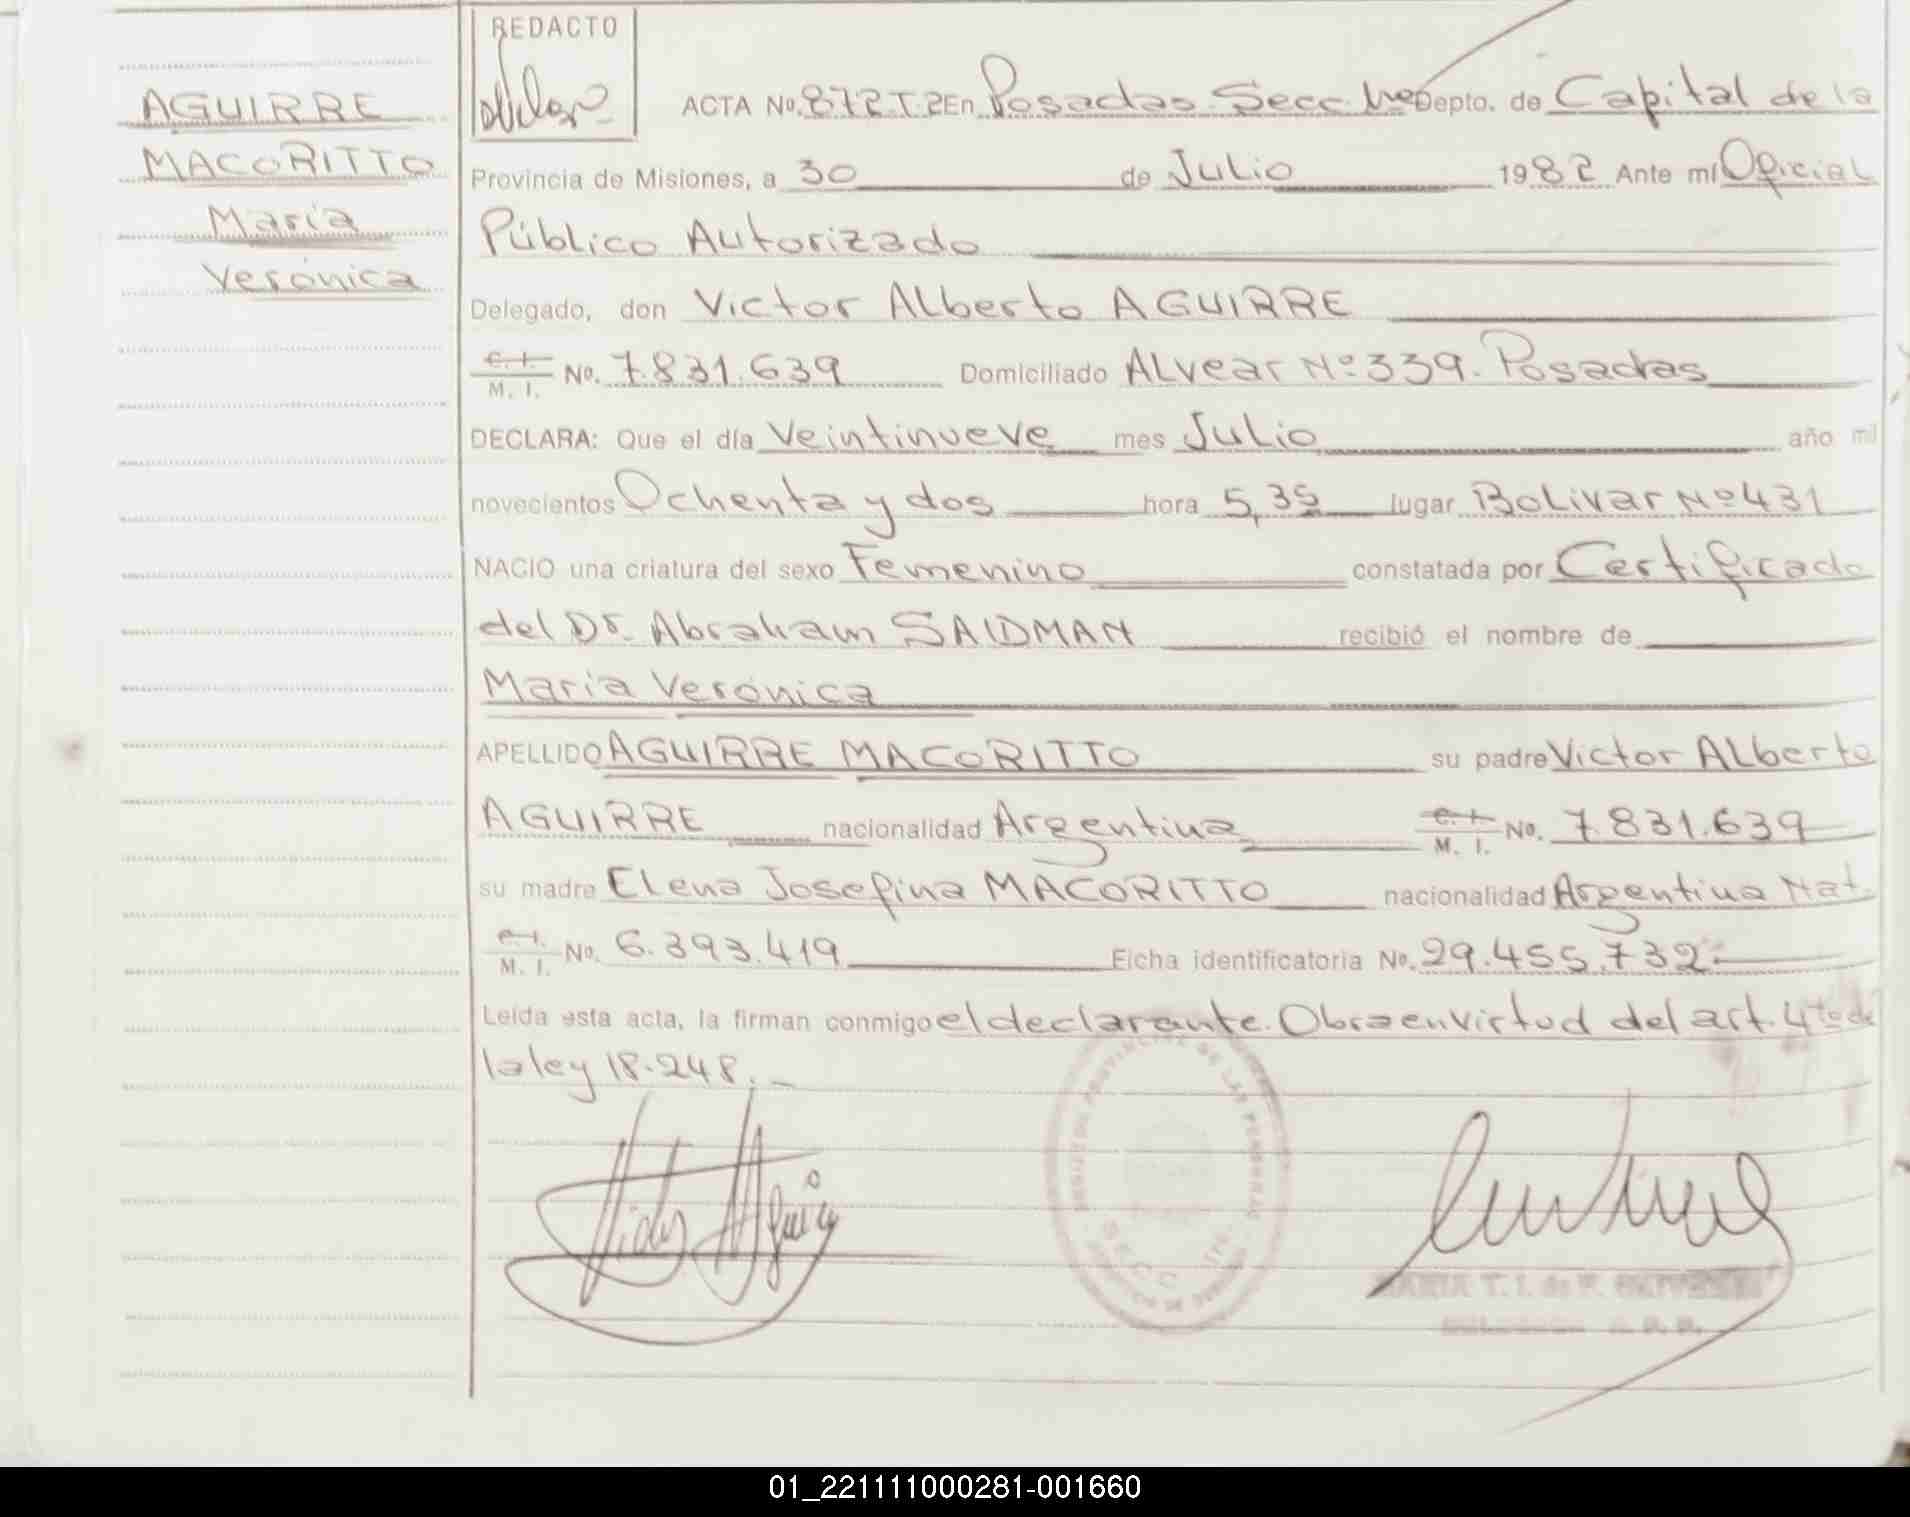 REDACTO
AGUIRRE
MACORITTO
María
Verónica
ACTA No. 872 T.2 En Posadas Secc. 1ra Depto. de Capital de la
Provincia de Misiones, a 30 de Julio 1982 Ante mí Oficial
Público Autorizado
Delegado, don Victor Alberto AGUIRRE
C.I. M. I. No. 7.831.639 Domiciliado Alvear Nº 339. Posadas
DECLARA: Que el día Veintinueve mes Julio año mil
novecientos Ochenta y dos hora 5,35 lugar Bolivar Nº 431
NACIO una criatura del sexo Femenino constatada por Certificado
del Dr. Abraham SAIDMAN recibió el nombre de
María Verónica
APELLIDO AGUIRRE MACORITTO su padre Victor Alberto
AGUIRRE nacionalidad Argentina C.I. M. I. No. 7.831.639
su madre Elena Josefina MACORITTO nacionalidad Argentina Nat.
C.I. M. I. No. 6.393.419 Ficha identificatoria No. 29.455.732.
Leída esta acta, la firman conmigo el declarante. Obra en virtud del art. 4to de
la ley 18.248.
PROVINCIAL DE LAS PERSONAS
SECC. 1ra.
MARIA T. I. de F.
01_221111000281-001660